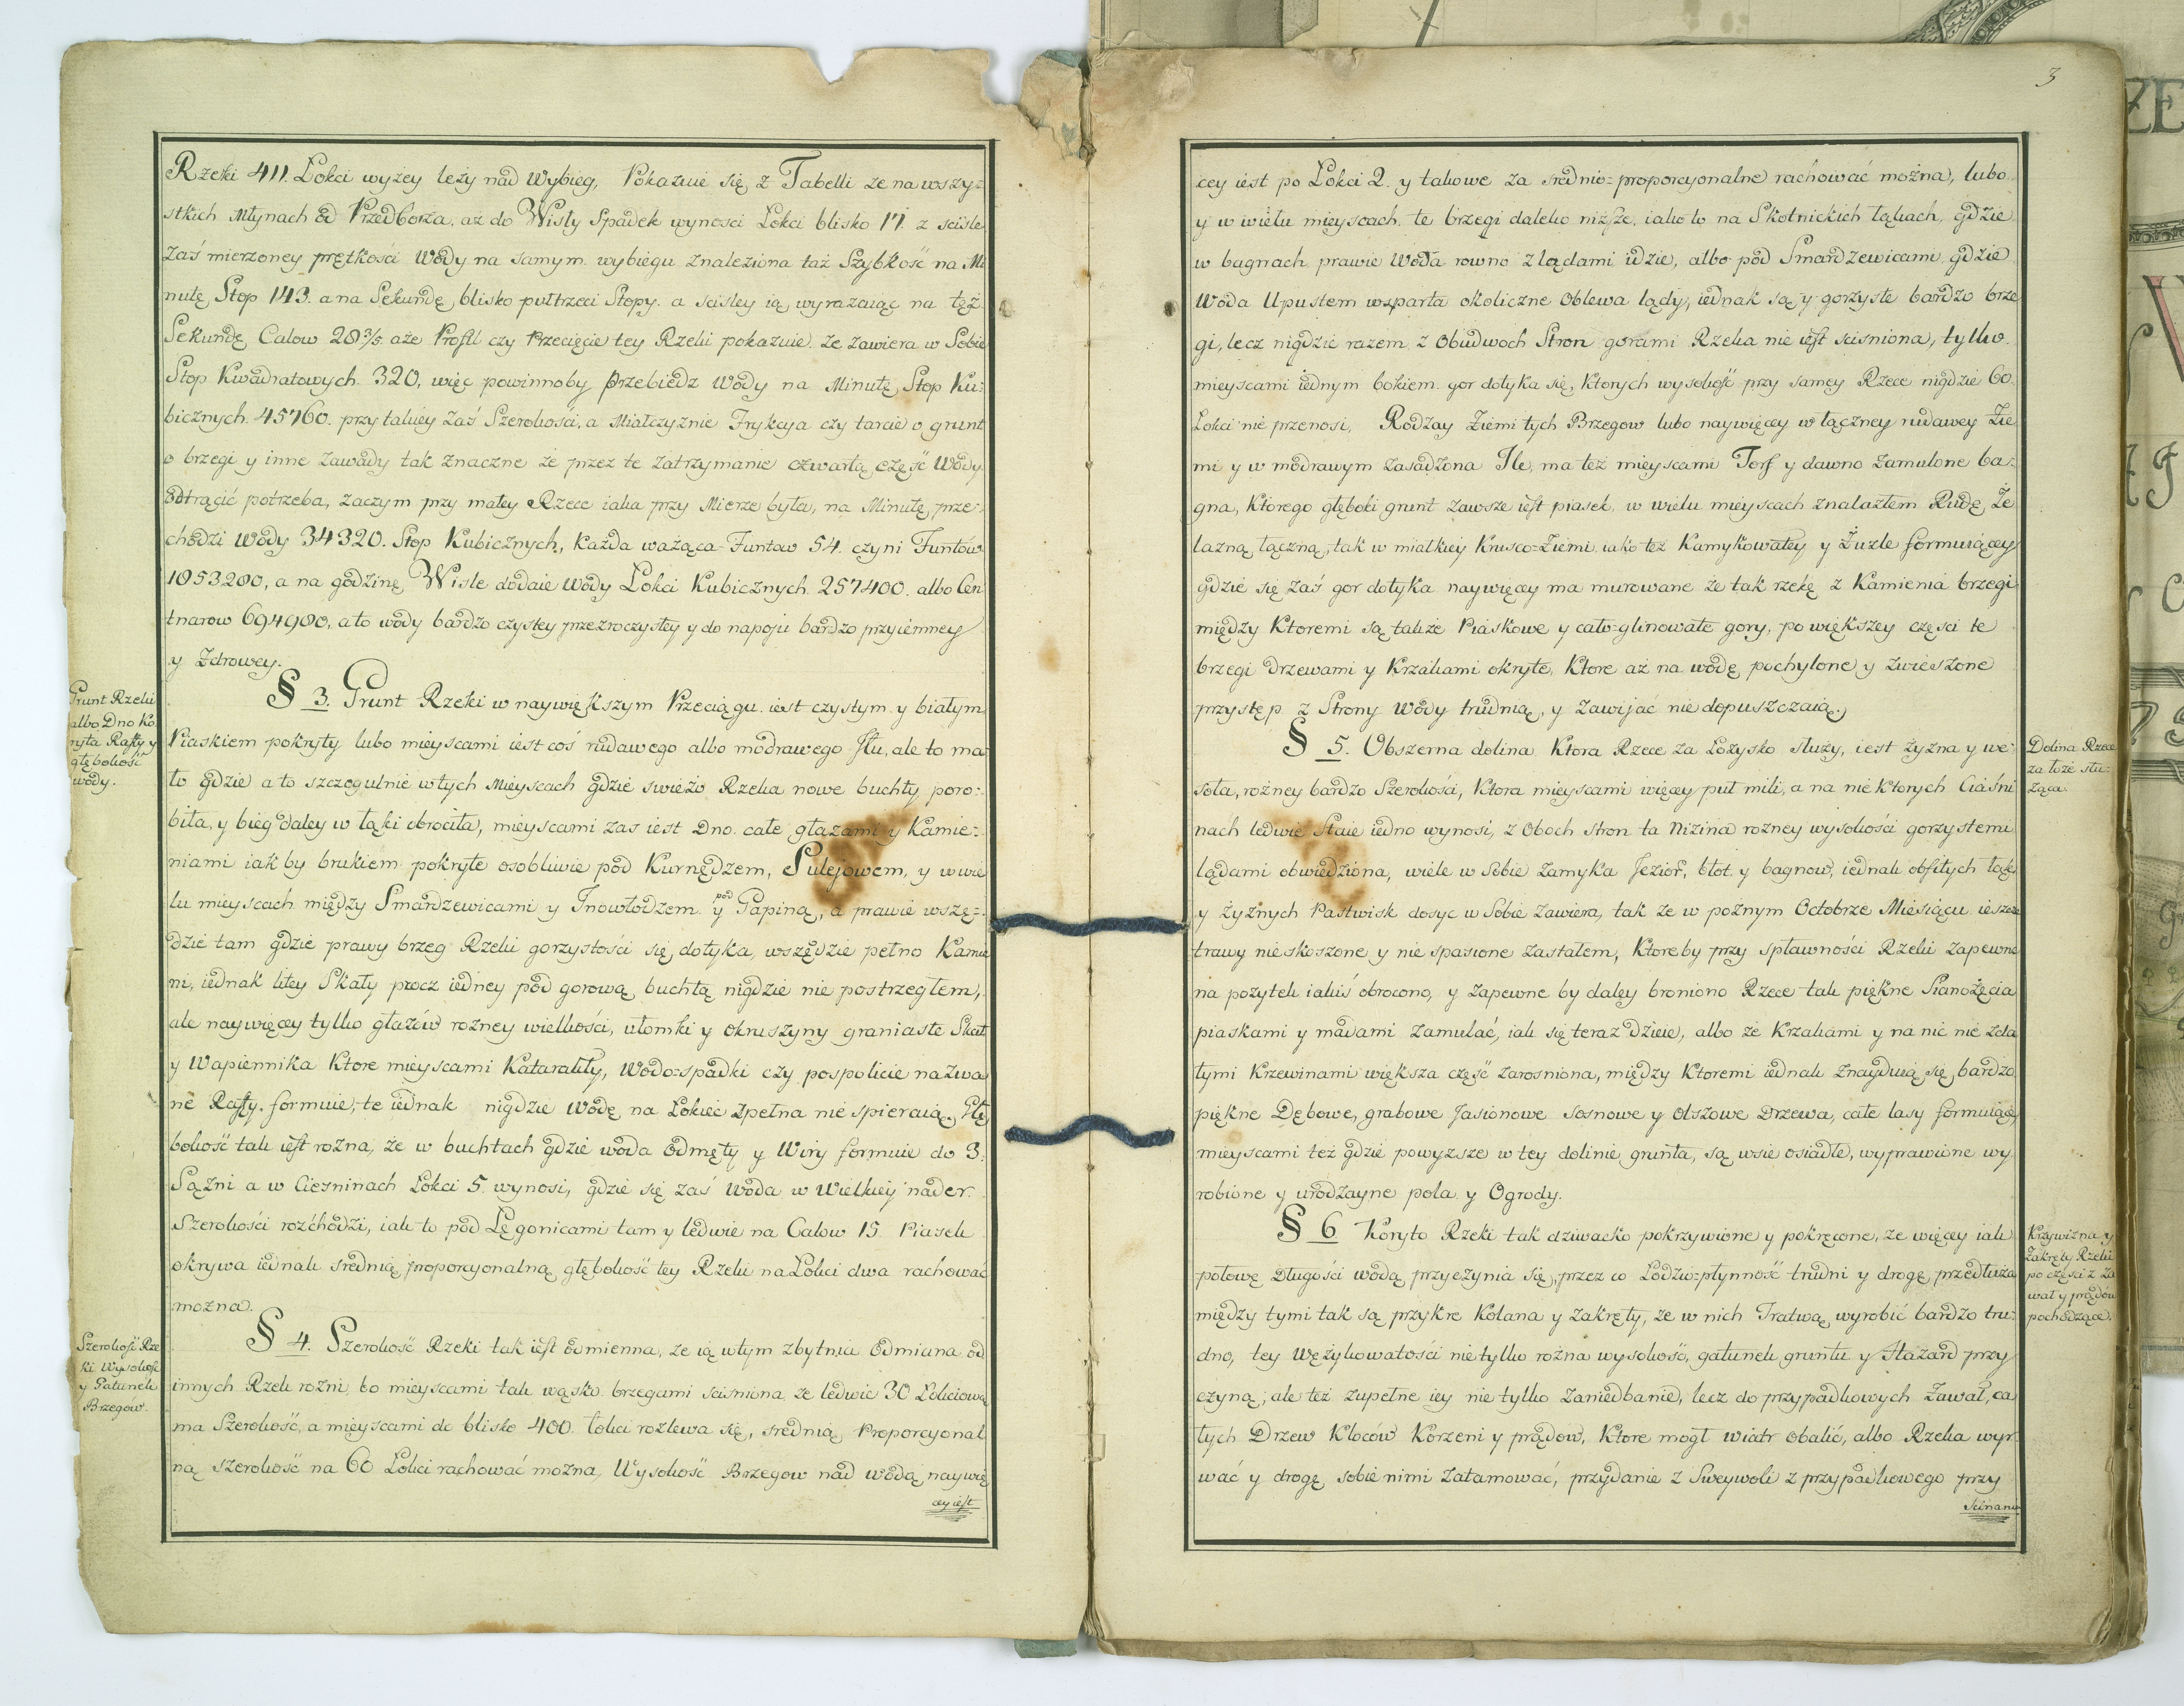 Rzeki 411. Łokci wyżey leży nad Wybieg, Pokazuie się z Tabelli ze na wszy=
stkich Młynach od Przedborza. aż do Wisły Spadek wynosi Łokci blisko 17. z scisle
Zaś mierzoney prętkości Wody na samym wybiegu znaleziona taż Szybkość na Mi
nutę Stop 143. a na Sekundę blisko pułtrzeci Stopy. a scisley ią wyrazaiąc na też
Sekundę Calow 28 3/5. aże Profil czy Przecięcie tey Rzeki pokazuie. że zawiera w Sobie
Stop Kwadratowych. 320, więc powinnoby Przebiedz Wody na Minutę Stop Ku:
bicznych. 45760. przy takiey Zaś Szerokości, a Miałczyznie Frykcya czy tarcie o grunt
o brzegi y inne Zawady tak Znaczne że przez te Zatrzymanie czwartą część Wody
odtrącić potrzeba, zaczym przy małey Rzece iaka przy Mierze była, na Minutę prze=
chodzi Wody 34320. Stop Kubicznych, Każda ważąca Funtow 54. czyni Funtów
1853280, a na godzinę Wisle dodaie Wody Łokci Kubicznych. 257400. albo Cen
tnarow 694980, a to wody bardzo czystey przezroczystey y do napoju bardzo przyiemney
y Zdrowey.
Grunt Rzeki
albo Dno Ko
ryta Rafty y
głębokość
wody.
§ 3. Grunt Rzeki w naywiększym Przeciągu. iest czystym y białym
Piaskiem pokryty lubo mieyscami iest coś rudawego albo modrawego Iłu, ale to ma
ło gdzie a to szczegulnie w tych Mieyscach gdzie swieżo Rzeka nowe buchty poro=
biła, y bieg daley w łąki obrociła, mieyscami zas iest Dno. całe głazami y Kamie=
niami iak by brukiem pokryte osobliwie pod Kurnędzem, Sulejowem, y w wie
lu mieyscach między Smardzewicami y Inowłodzem. y pod Gapiną, a prawie wszę=
dzie tam gdzie prawy brzeg Rzeki gorzystości się dotyka, wszędzie pełno Kamie
ni, iednak litey Skały procz iedney pod gorową buchtą nigdzie nie postrzegłem,
ale naywięcey tylko głazów rozney wielkości, ułomki y okruszyny graniaste Skał
y Wapiennika Ktore mieyscami Katarakty, Wodo=spadki czy pospolicie nazwa
ne Rafty. formuie, te iednak nigdzie Wodę na Łokieć zpełna nie spieraią. Głę
bokość tak iest rożna, że w buchtach gdzie woda Odmęty y Wiry formuie do 3.
Sążni a w Ciesninach Łokci 5. wynosi, gdzie się zaś Woda w Wielkiey nader
Szerokości rozchodzi, iak to pod Łęgonicami tam y ledwie na Calow 15. Piasek
okrywa iednak srednią proporcyonalną głębokość tey Rzeki na Łokci dwa rachować
można.
Szerokość Rze
ki Wysokość
y Gatunek
Brzegów.
§ 4. Szerokość Rzeki tak iest odmienna, ze ią w tym zbytnia Odmiana od
innych Rzek rozni, bo mieyscami tak wąsko brzegami scisniona że ledwie 30 Łokciową
ma Szerokość, a mieyscami do blisko 400. łokci rozlewa się, srednią Proporcyonal
ną szerokość na 60 Łokci rachować można, Wysokość Brzegow nad wodą naywię
cey iest
3
cey iest po Łokci 2. y takowe za srednio=proporcyonalne rachować można, lubo
y w wielu mieyscach te brzegi daleko niższe, iako to na Skotnickich łąkach, gdzie
w bagnach prawie Woda rowno z lądami idzie, albo pod Smardzewicami gdzie
Woda Upustem wsparta okoliczne Oblewa lądy, iednak są y gorzyste bardzo brze
gi, lecz nigdzie razem z Obudwoch Stron gorami Rzeka nie iest scisniona, tylko
mieyscami iednym bokiem gor dotyka się, Ktorych wysokość przy samey Rzece nigdzie 60.
Łokci nie przenosi, Rodzay Ziemi tych Brzegow lubo naywięcey w łączney rudawey Zie
mi y w modrawym zasadzona Ile, ma też mieyscami Torf y dawno zamulone ba=
gna, Ktorego głęboki grunt zawsze iest piasek, w wielu mieyscach znalazłem Rudę Że
lazną łączną, tak w miałkiey Krusco=Ziemi iako też Kamykowatey y Żuzle formuiącey
gdzie się zaś gor dotyka naywięcey ma murowane że tak rzekę z Kamienia brzegi
między Ktoremi są także Piaskowe y cało=glinowate gory, po większey części te
brzegi Drzewami y Krzakami okryte, Ktore aż na wodę pochylone y zwieszone
przystęp z Strony Wody trudnią, y Zawijać nie dopuszczaią.
§ 5. Obszerna dolina Ktora Rzece za Łożysko służy, iest żyzna y we=
Dolina Rzece
za łoże słu=
żąca.
soła, rożney bardzo Szerokości, Ktora mieyscami więcey puł mili, a na nie Ktorych Ciaśni
nach ledwie Staie iedno wynosi, z Oboch stron ta Nizina rozney wysokości gorzystemi
lądami obwiedziona, wiele w Sobie zamyka Jezior, błot y bagnow, iednak obfitych łąk
y żyznych Pastwisk dosyc w Sobie Zawiera, tak ze w poznym Octobrze Miesiącu ieszcze
trawy nieskoszone y nie spasione zastałem, Ktoreby przy spławności Rzeki zapewne
na pożytek iakiś obrocono, y zapewne by daley broniono Rzece tak piękne Sianożęcia
piaskami y madami zamulać, iak się teraz dzieie, albo że Krzakami y na nic nie zda
łymi Krzewinami większa część zarosniona, między Ktoremi iednak znayduią się bardzo
piękne Dębowe, grabowe Jasionowe sosnowe y Olszowe Drzewa, całe lasy formuiąc,
mieyscami też gdzie powyzsze w tey dolinie grunta, są wsie osiadłe, wyprawione wy
robione y urodzayne pola y Ogrody.
§ 6 Koryto Rzeki tak dziwacko pokrzywione y pokręcone, że więcey iak
Krzywizna y
Zakręty Rzeki
po części z Za
wał y prądów
pochodzące.
połowę Długości wodą przyczynia się, przez co Łodzio=płynność trudni y drogę przedłuża
między tymi tak są przykre Kolana y zakręty, że w nich Tratwą wyrobić bardzo tru=
dno, tey Wężykowatości nie tylko rożna wysokość, gatunek gruntu y Hazard przy
czyną; ale też zupełne iey nie tylko zaniedbanie, lecz do przypadkowych Zawał, ca
łych Drzew Kloców Korzeni y prądow, Ktore mogł wiatr obalić, albo Rzeka wyr
wać y drogę sobie nimi załamować, przydanie z Sweywoli z przypadkowego przy
scinaniu